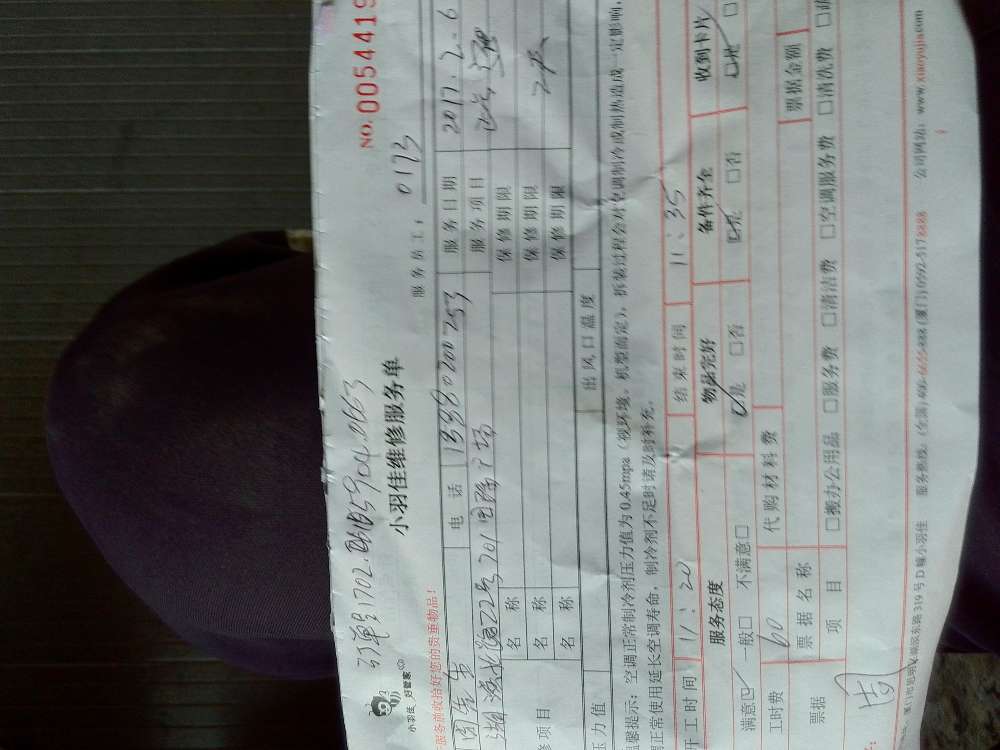 NO. 0054419
订单号1702
小羽佳维修服务单
服务员工: 0173
小羽佳 好管家
服务前收拾好您的贵重物品!
周先生 电 话 服务日期 2017.2.6
701 广场 服务项目
名 称 保修期限
名 称 保修期限
名 称 保修期限
修项目
压力值 出风口温度
温馨提示: 空调正常制冷剂压力值为0.45mpa(视环境、机型而定), 拆装过程会对空调制冷或制热造成一定影响,
正常使用延长空调寿命, 制冷剂不足时请及时补充。
开工时间 11:20 结束时间 11:35
服务态度 物品完好 备件齐全 收到卡片
满意 一般 不满意 是 否 是 否 是
工时费 60 代购材料费
票据 票据名称 票据金额
项 目 搬办公用品 服务费 清洁费 空调服务费 清洗费
周
319号D幢小羽佳 服务热线: (全国) 400-6665-888 (厦门) 0592-5178888 公司网站: www.xiaoyujia.com